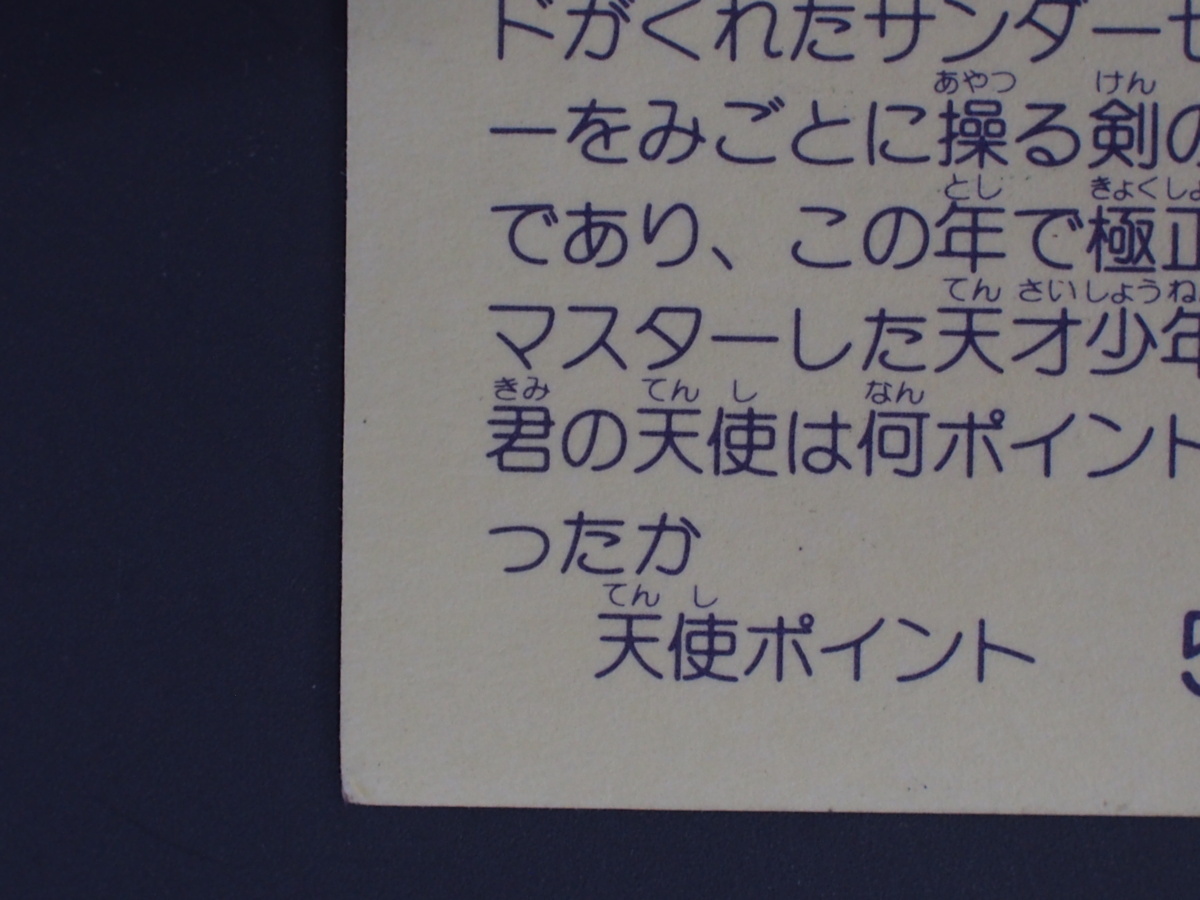 ドがくれたサンダーセ
ーをみごとに操る剣の
であり、この年で極正
マスターした天才少年
君の天使は何ポイント
ったか
天使ポイント 5